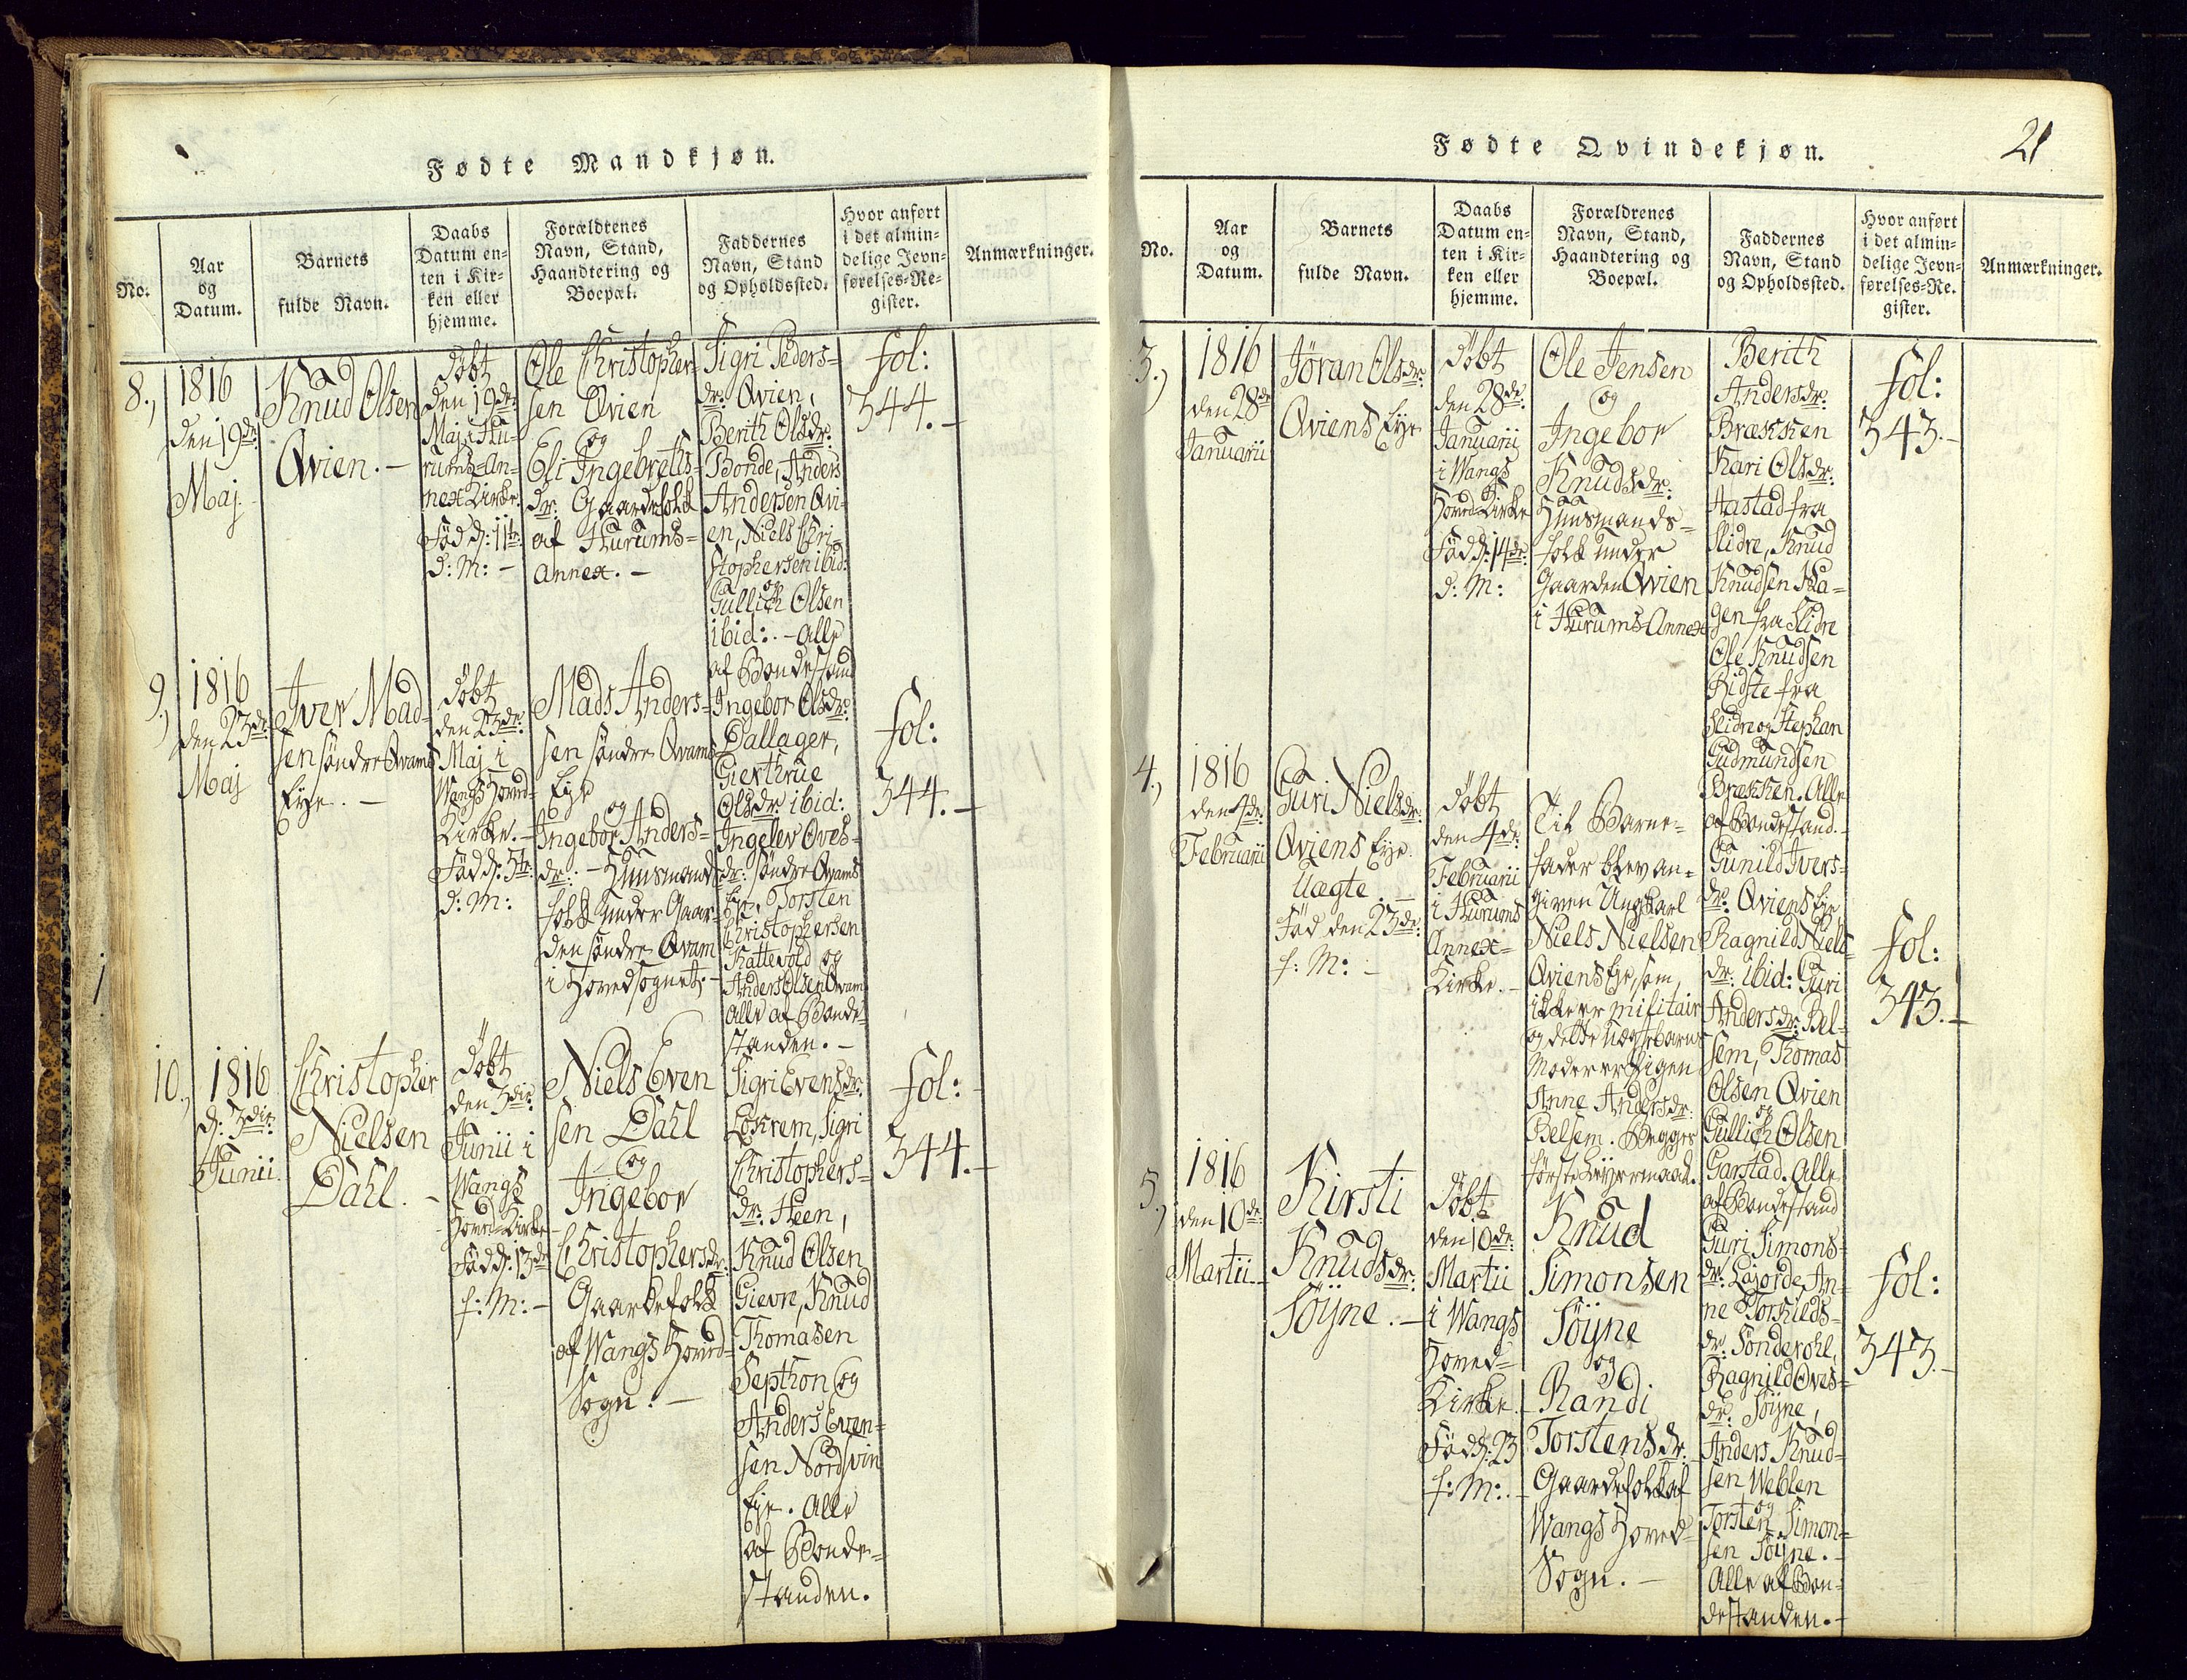 Fødte Mandkjøn.
No.
Aar
og
Datum.
Barnets
fulde Navn.
Daabs
Datum en-
ten i Kir-
ken eller
hjemme.
Forældrenes
Navn, Stand,
Haandtering og
Boepæl.
Faddernes
Navn, Stand
og Opholdssted.
Hvor anført
i det almin-
delige Jevn-
førelses-Re-
gister.
Anmærkninger.
8.,
1816
den 19de
Maj.
Knud Olsen
Qvien. -
döbt
den 19de
Maj i Hu-
rums-An-
nex Kirke.
Föd d: 11te
d: M: -
Ole Christopher-
sen Qvien
og
Eli Ingebrethsdr:
Gaardfolk
af Hurums-
Annex. -
Sigri Peders-
dr: Qvien,
Berith Olsdr:
Bonde, Anders
Andersen Qvi-
en, Niels Chri-
stophersen ibid:
og
Gullich Olsen
ibid: - Alle
af Bondestand
fol:
344. -
9.,
1816
den 23de
Maj
Iver Mad-
sen söndre Qvams
Eye. -
döbt
den 23de
Maj i
Wangs Hoved-
Kirke. -
Föd d: 5te
d: M:
Mads Anders-
sen söndre Qvams
Eye
og
Ingebor Anders-
dr: - Huusmands
folk under Gaar-
den söndre Qvam
i Hovedsognet. -
Ingebor Olsdr:
Dallager,
Gierthrue
Olsdr: ibid:
Ingelev Oves-
dr: söndre Qvams
Eye, Torsten
Christophersen
Kattevold og
Anders Olsen Qvam
Alle af Bonde-
standen. -
fol:
344. -
10.,
1816
d: 3die
Junii.
Christopher
Nielsen
Dahl. -
döbt
den 3die
Junii i
Wangs
Hoved-Kirke
Föd d: 13de
f: M: -
Niels Even
sen Dahl
og
Ingebor
Christophersdr:
Gaardefolk
af Wangs Hoved-
Sogn. -
Sigri Evensdr:
Lökrem, Sigri
Christophers-
dr: Heen,
Knud Olsen
Gievre, Knud
Thomasen
Septhon og
Anders Even-
sen Nordsvin
Eye. Alle
af Bonde-
standen.
fol:
344. -
Fødte Qvindekjøn.
21
No.
Aar
og
Datum.
Barnets
fulde Navn.
Daabs
Datum en-
ten i Kir-
ken eller
hjemme.
Forældrenes
Navn, Stand,
Haandtering og
Boepæl.
Faddernes
Navn, Stand
og Opholdssted.
Hvor anført
i det almin-
delige Jevn-
førelses-Re-
gister.
Anmærkninger.
3.,
1816
den 28de
Januarii
Jöran Olsdr:
Qviens Eye
döbt
den 28de
Januarii
i Wangs
Hoved-Kirke
Föd d: 14de
d: M:
Ole Jensen
og
Ingebor
Knudsdr:
Huusmands-
folk under
Gaarden Qvien
i Hurums Annex
Berith
Andersdr:
Brækken
Kari Olsdr:
Hastad fra
Slidre, Knud
Knudsen Ha-
gen fra Slidre
Ole Knudsen
Ridste fra
Slidre og Stephan
Gudmundsen
Brækken. Alle
af Bondestand. -
fol:
343. -
4.,
1816
den 4de
Februarii
Guri Nielsdr:
Qviens Eye.
Uægte. -
Föd den 23de
f: M: -
döbt
den 4de
Februarii
i Hurums
Annex-
Kirke. -
Til Barne-
fader blev an-
given Ungkarl
Niels Nielsen
Qviens Eye, som
ikke er militair
og dette uægte Barns
Moder er Pigen
Anne Andersdr:
Belsem. Begges
første Leyermaal.
Gunild Ivers-
dr: Qviens Eye
Ragnild Niels-
dr: ibid: Guri
Andersdr: Bel-
sem, Thomas
Olsen Qvien
og
Gullich Olsen
Garstad. Alle
af Bondestand
fol:
343. -
5.,
1816
den 10de
Martii
Kirsti
Knudsdr:
Söyne. -
döbt
den 10de
Martii
i Wangs
Hoved-
Kirke.
Föd d: 23
f: M:
Knud
Simonsen
Söyne
og
Randi
Torstensdr:
Gaardefolk af
Wangs Hoved-
Sogn. -
Guri Simons-
dr: Lajorde, An-
ne Torkilds-
dr: Sönderohl,
Ragnild Oves-
dr: Söyne,
Anders Knud-
sen Weblen
og
Torsten Simon-
sen Söyne. -
Alle af Bon-
destanden. -
fol:
343. -